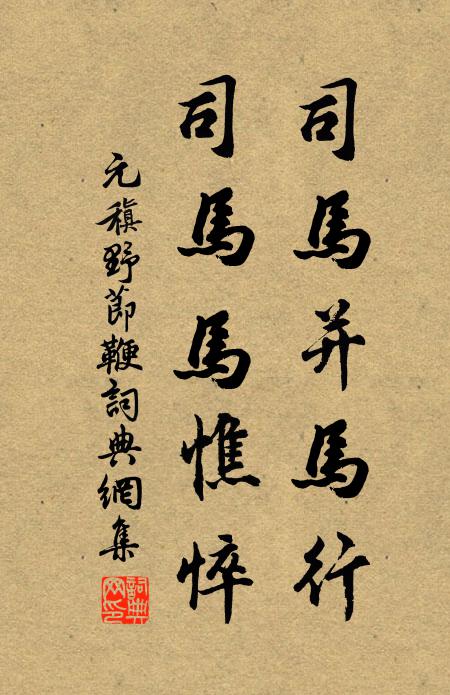 司馬并馬行
司馬馬憔悴
元稹野節鞭詞典網集
詞典網印